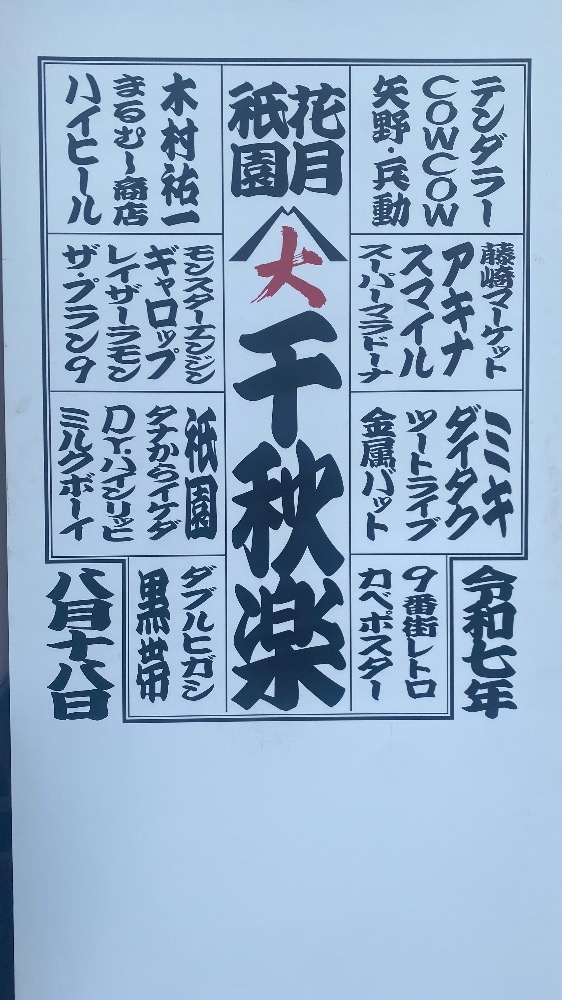 令和七年
テンダラー
COWCOW
矢野・兵動
藤崎マーケット
アキナ
スマイル
スーパーマラドーナ
ミキ
ダイタク
ツートライブ
金属バット
9番街レトロ
カベポスター
花月
祇園
大
千秋楽
木村祐一
まるむし商店
ハイヒール
モンスターエンジン
ギャロップ
レイザーラモン
ザ・プラン9
祇園
タナからイケダ
D.Y.ハイシリッヒ
ミルクボーイ
ダブルヒガシ
黒帯
八月十八日